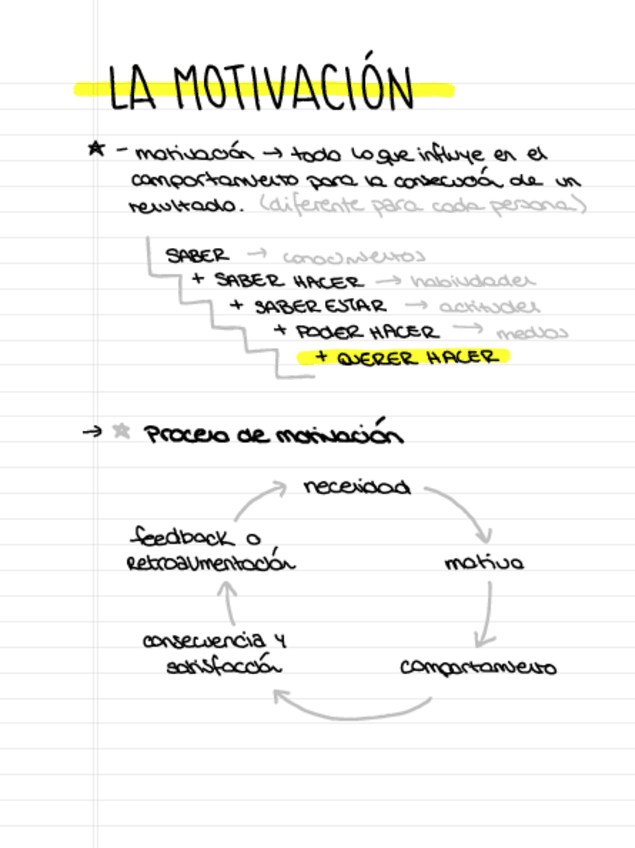 LA MOTIVACIÓN
★ - motivación → todo lo que influye en el
comportamiento para la consecución de un
resultado. (diferente para cada persona)
SABER → conocimientos
+ SABER HACER → habilidades
+ SABER ESTAR → actitudes
+ PODER HACER → medios
+ QUERER HACER
→ ☆ Proceso de motivación
necesidad
feedback o
retroalimentación
motivo
consecuencia y
satisfacción
comportamiento